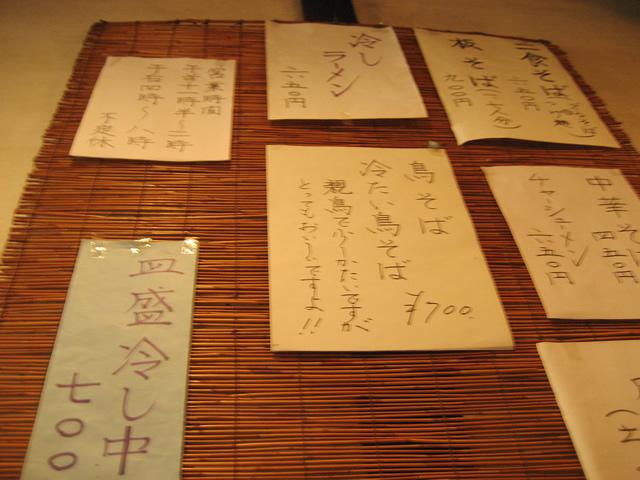 営業時間
午前十一時半～二時
午后四時～八時
不定休
冷し
ラーメン
六五０円
二食そば
六五０円
板そば(二人分)
九００円
鳥そば
冷たい鳥そば
¥700
親鳥で少しかたいですが
とってもおいしいですよ!!
中華そば
四五０円
チャーシューメン
六五０円
皿盛冷し中
七００